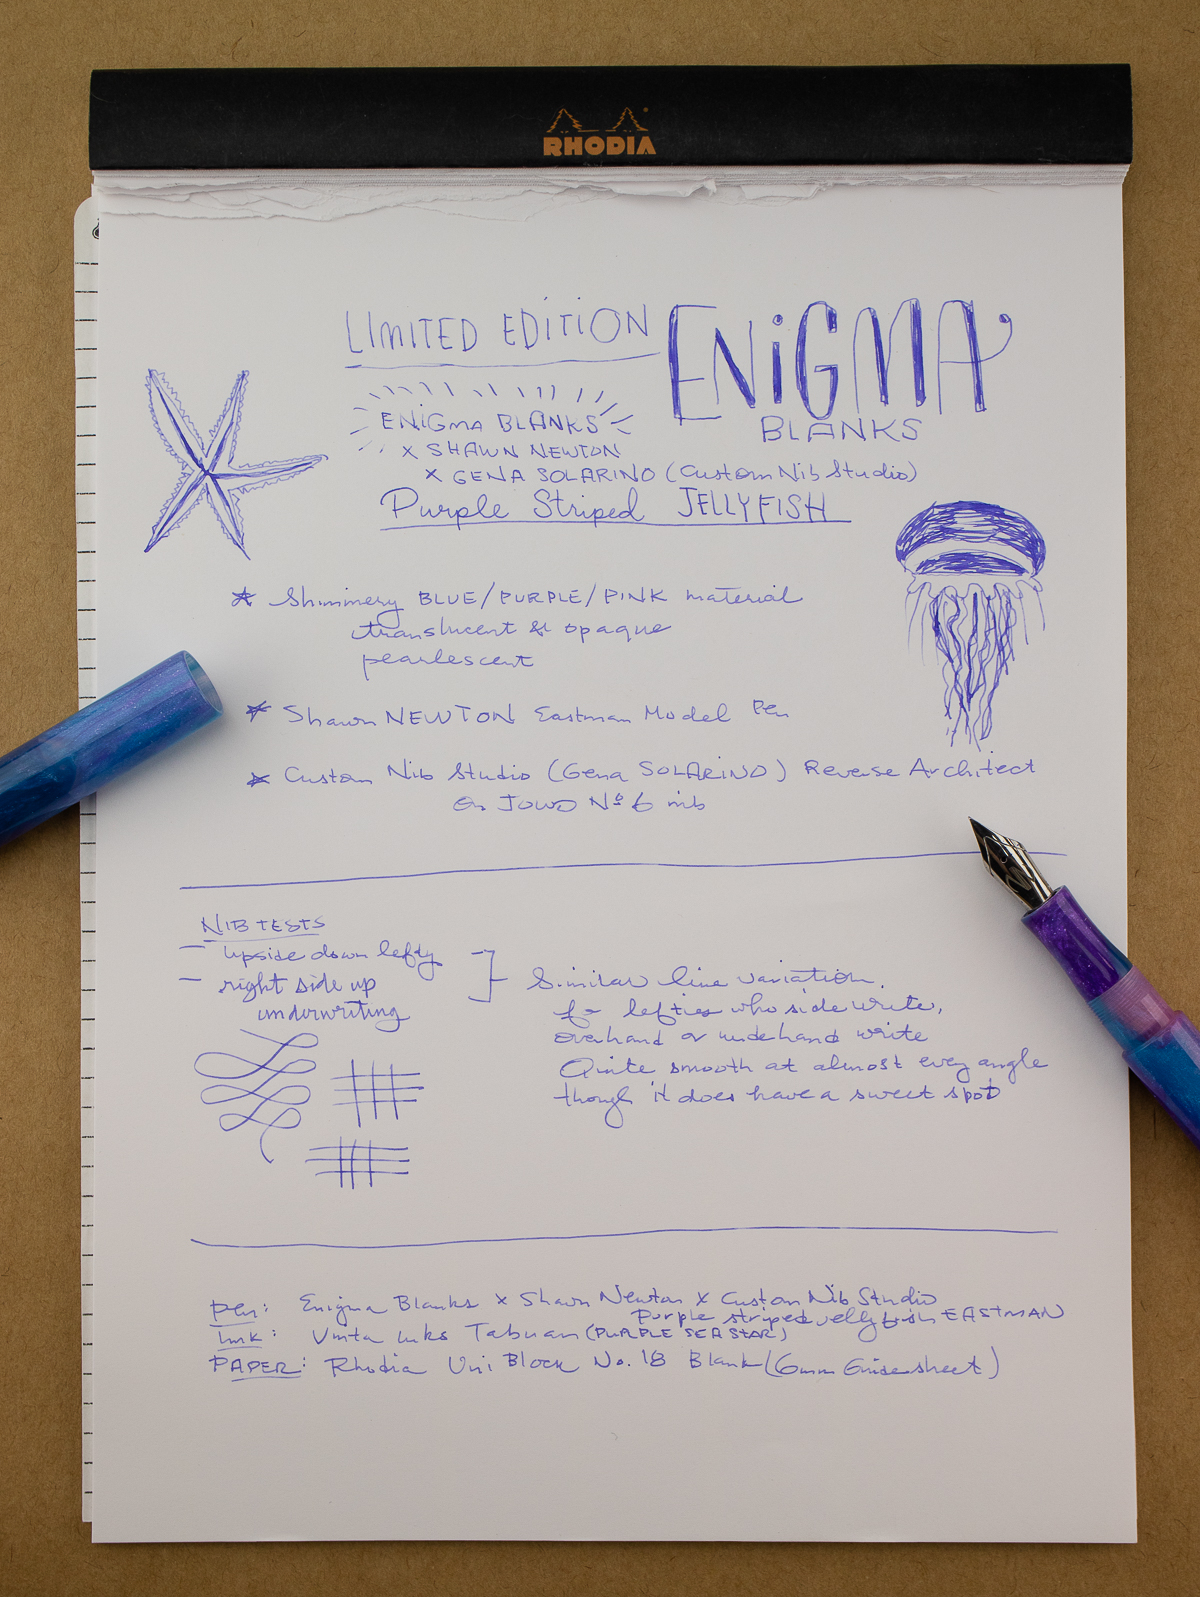 RHODIA
LIMITED EDITION
ENiGMA
BLANKS
ENiGMA BLANKS
x SHAWN NEWTON
x GENA SOLARINO (Custom Nib Studio)
Purple Striped JELLYFISH
* Shimmery BLUE/PURPLE/PINK material
translucent & opaque
pearlescent
* Shawn NEWTON Eastman Model Pen
* Custom Nib Studio (Gena SOLARINO) Reverse Architect
on JOWO No 6 nib
NIB TESTS
– upside down lefty
– right side up
underwriting
Similar line variation.
for lefties who side write,
overhand or underhand write
Quite smooth at almost every angle
though it does have a sweet spot
Pen: Enigma Blanks x Shawn Newton x Custom Nib Studio
Purple striped jellyfish EASTMAN
Ink: Vinta Inks Tabuan (PURPLE SEA STAR)
PAPER: Rhodia Uni Block No. 18 Blank (6mm Guidesheet)